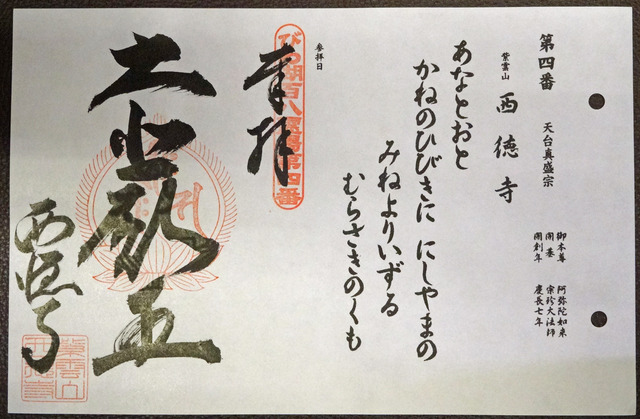 第四番 天台真盛宗
御本尊 阿弥陀如来
開基 宗珍大法師
開創年 慶長七年
紫雲山 西徳寺
あなとおと
かねのひびきに にしやまの
みねよりいずる
むらさきのくも
参拝日
びわ湖百八霊場第四番
奉拝
西徳寺
紫雲山